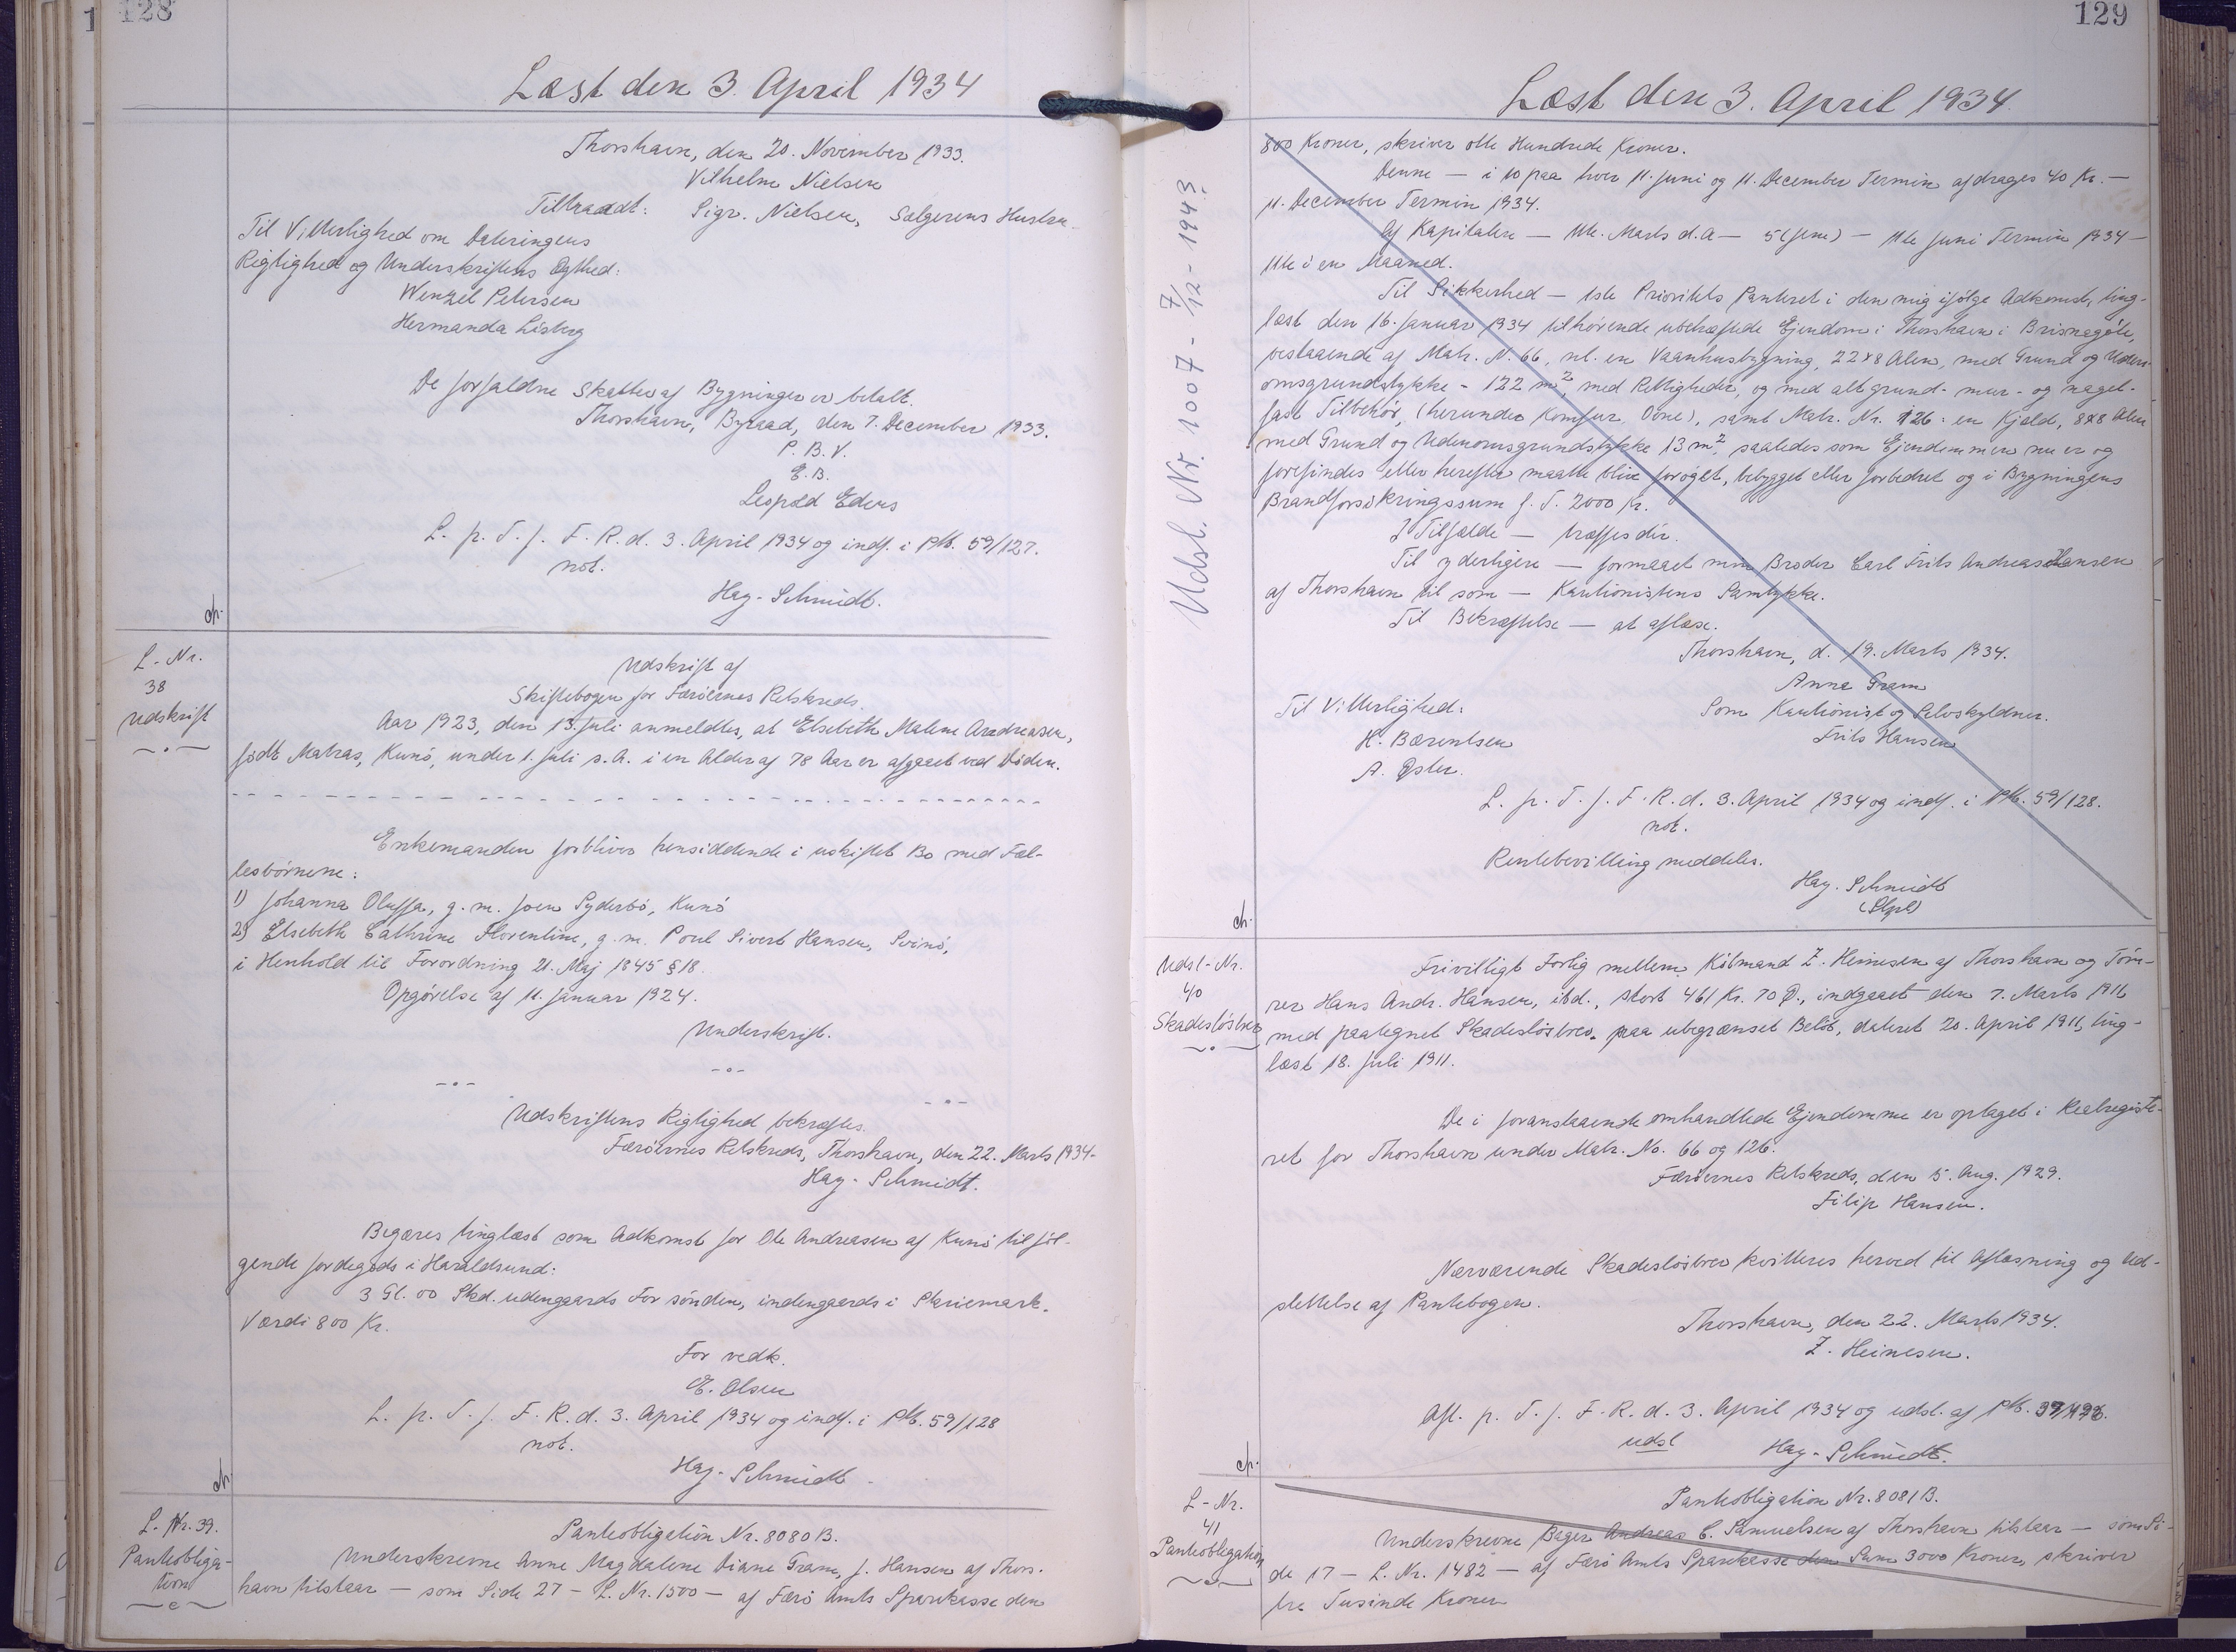 128
Læst den 3. April 1934
Thorshavn, den 20. November 1933.
Vilhelm Nielsen
Tiltraadt: Sigr. Nielsen, Sælgerens Hustru
Til Vitterlighed om Dateringens
Rigtighed og Underskriftens Ægthed:
Wenzel Petersen
Hermanda Lisberg
De forfaldne Skatter af Bygningen er betalt.
Thorshavn, Byraad, den 7. December 1933.
P. B. V.
E. B.
Leopold Edens
L. p. T. f. F. R. d. 3. April 1934 og indf. i Ptb. 59/127.
not.
Hay-Schmidt.
L-Nr.
38
Udskrift
Udskrift af
Skiftebogen for Færöernes Retskreds.
Aar 1923, den 13. Juli anmeldtes, at Elsebeth Malene Andreasen,
født Matras, Kunö, under 1. Juli s.A. i en Alder af 78 Aar er afgaaet ved Döden.
Enkemanden forbliver hensiddende i uskiftet Bo med Fæl-
lesbörnene:
1) Johanna Oluffa, g. m. Joen Syderbö, Kunö
2) Elsebeth Cathrine Florentine, g. m. Poul Sivert Hansen, Svinö,
i Henhold til Forordning 21. Maj 1845 § 18.
Opgörelse af 11. Januar 1924.
Underskrift.
Udskriftens Rigtighed bekræftes.
Færöernes Retskreds, Thorshavn, den 22. Marts 1934.
Hay-Schmidt.
Begæres tinglæst som Adkomst for Ole Andreasen af Kunö til föl-
gende Jordegods i Haraldsund:
3 Gl. 00 Skd. udengaards For sönden, indengaards i
Værdi 800 Kr.
For vedk.
E. Olsen
L. p. T. f. F. R. d. 3. April 1934 og indf. i Ptb. 59/128
not.
Hay-Schmidt
L. Nr. 39.
Pantobliga-
tion
Pantobligation Nr. 8080 B.
Underskrevne Anne Magdalene Diane Gram, f. Hansen af Thors-
havn tilstaar — som Side 27 — L. Nr. 1500 — af Færö Amts Sparekasse den
129
Læst den 3. April 1934.
Udsl. Nr. 1007 - 7/12-1943
800 Kroner, skriver otte Hundrede Kroner.
Denne — i 10 paa hver 11. Juni og 11. December Termin afdrages 40 Kr. —
11. December Termin 1934.
Af Kapitalen — 11te. Marts d.A — 5 (fem) — 11te Juni Termin 1934 —
11te i en Maaned.
Til Sikkerhed — 1ste Prioritets Panteret i den mig ifølge Adkomst, ting-
læst den 16. Januar 1934 tilhörende ubehæftede Ejendom i Thorshavn i
bestaaende af Matr. N. 66, nl. en Vaanhusbygning, 22x8 Alen, med Grund og Uden-
omsgrundstykke - 122 m², med Rettigheder, og med alt grund- mur- og nagel-
fast Tilbehör, (herunder Komfur, Ovne), samt Matr. Nr. 126: en Kjald, 8x8 Alen
med Grund og Udenomsgrundstykke 13 m², saaledes som Ejendommen nu er og
forefindes eller herefter maatte blive forøget, bebygget eller forbedret og i Bygningens
Brandforsikringssum f. T. 2000 Kr.
I Tilfælde — træffes dér.
Til yderligere — formaaet min Broder Carl Frits Andreas Hansen
af Thorshavn til som — Kautionistens Samtykke.
Til Bekræftelse — at aflæse.
Thorshavn, d. 19. Marts 1934.
Anna Gram
Til Vitterlighed:
Som Kautionist og Selvskyldner.
H. Bærentsen
Frits Hansen
A.
L. p. T. f. F. R. d. 3. April 1934 og indf. i Ptb. 59/128.
not.
Rentebevilling meddeles.
Hay-Schmidt
Udsl-Nr.
40
Skadeslösbrev
Frivilligt Forlig mellem Köbmand Z. Heinesen af Thorshavn og Töm-
rer Hans Andr. Hansen, ibd., stort 461 Kr. 70 Ø., indgaaet den 7. Marts 1911,
med paategnet Skadeslösbrev paa ubegrænset Belöb, dateret 20. April 1911, ting-
læst 18. Juli 1911.
De i foranstaaende omhandlede Ejendomme er optaget i Realregiste-
ret for Thorshavn under Matr. No. 66 og 126.
Færöernes Retskreds, den 5. Aug. 1929.
Filip Hansen.
Nærværende Skadeslösbrev kvitteres herved til Aflæsning og Ud-
slettelse af Pantebogen.
Thorshavn, den 22. Marts 1934.
Z. Heinesen.
Afl. p. T. f. F. R. d. 3. April 1934 og udsl. af Ptb.
udsl
Hay-Schmidt.
L-Nr.
41
Pantobligation
Pantobligation Nr. 8081 B.
Underskrevne Bager Andreas C. Samuelsen af Thorshavn tilstaar — som Si-
de 17 — L. Nr. 1482 — af Færö Amts Sparekasse den Sum 3000 Kroner, skriver
tre Tusinde Kroner